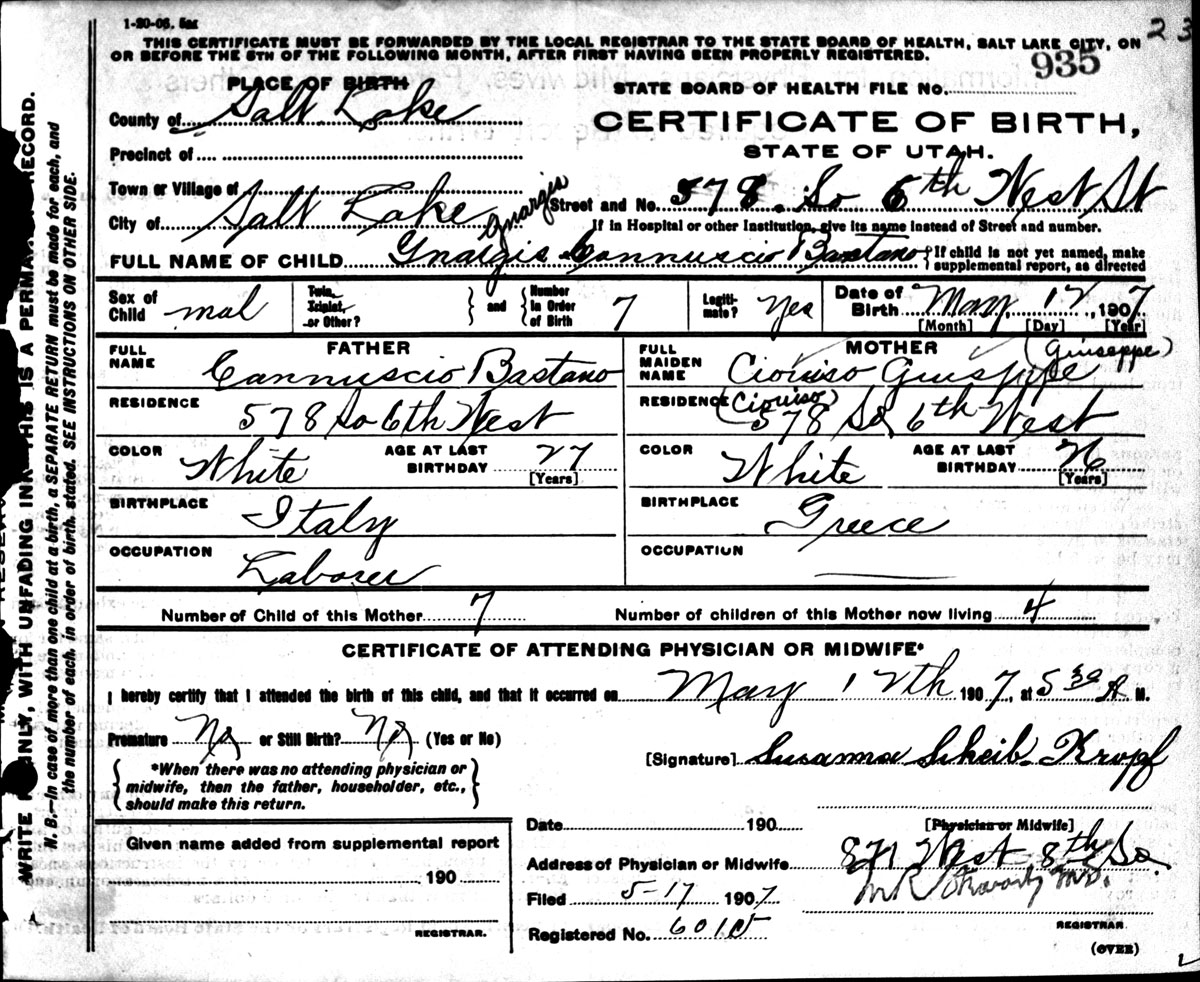 1-20-06. 5m
23
THIS CERTIFICATE MUST BE FORWARDED BY THE LOCAL REGISTRAR TO THE STATE BOARD OF HEALTH, SALT LAKE CITY, ON
OR BEFORE THE 5TH OF THE FOLLOWING MONTH, AFTER FIRST HAVING BEEN PROPERLY REGISTERED.
935
PLACE OF BIRTH
STATE BOARD OF HEALTH FILE No.
County of Salt Lake
CERTIFICATE OF BIRTH,
Precinct of
STATE OF UTAH.
Town or Village of
Street and No. 578. So 6th West St
City of Salt Lake
If in Hospital or other Institution, give its name instead of Street and number.
Gnargis
FULL NAME OF CHILD Gnargis Cannuscio Bastano
If child is not yet named, make supplemental report, as directed
Sex of Child mal
Twin, Triplet, or Other?
and
Number in Order of Birth 7
Legitimate? Yes
Date of Birth May 12, 1907
[Month] [Day] [Year]
FATHER
FULL NAME Cannuscio Bastano
MOTHER
(Guiseppe)
FULL MAIDEN NAME Ciouiso Giuseppe
RESIDENCE 578 So 6th West
(Ciouiso)
RESIDENCE 578 So 6th West
COLOR White AGE AT LAST BIRTHDAY 27 [Years]
COLOR White AGE AT LAST BIRTHDAY 26 [Years]
BIRTHPLACE Italy
BIRTHPLACE Greece
OCCUPATION Laborer
OCCUPATION
Number of Child of this Mother 7 Number of children of this Mother now living 4
CERTIFICATE OF ATTENDING PHYSICIAN OR MIDWIFE*
I hereby certify that I attended the birth of this child, and that it occurred on May 12th 1907, at 5 30 A M.
Premature No or Still Birth? No (Yes or No)
[Signature] Susanna Scheib Kropf
*When there was no attending physician or
midwife, then the father, householder, etc.,
should make this return.
Date 190
[Physician or Midwife]
Given name added from supplemental report
190
REGISTRAR.
Address of Physician or Midwife 871 West 8th So
Filed 5-17 1907
M.D.
REGISTRAR
Registered No. 6015
(OVER)
WRITE PLAINLY, WITH UNFADING INK—THIS IS A PERMANENT RECORD.
N. B.—In case of more than one child at a birth, a SEPARATE RETURN must be made for each, and
the number of each, in order of birth, stated. SEE INSTRUCTIONS ON OTHER SIDE.